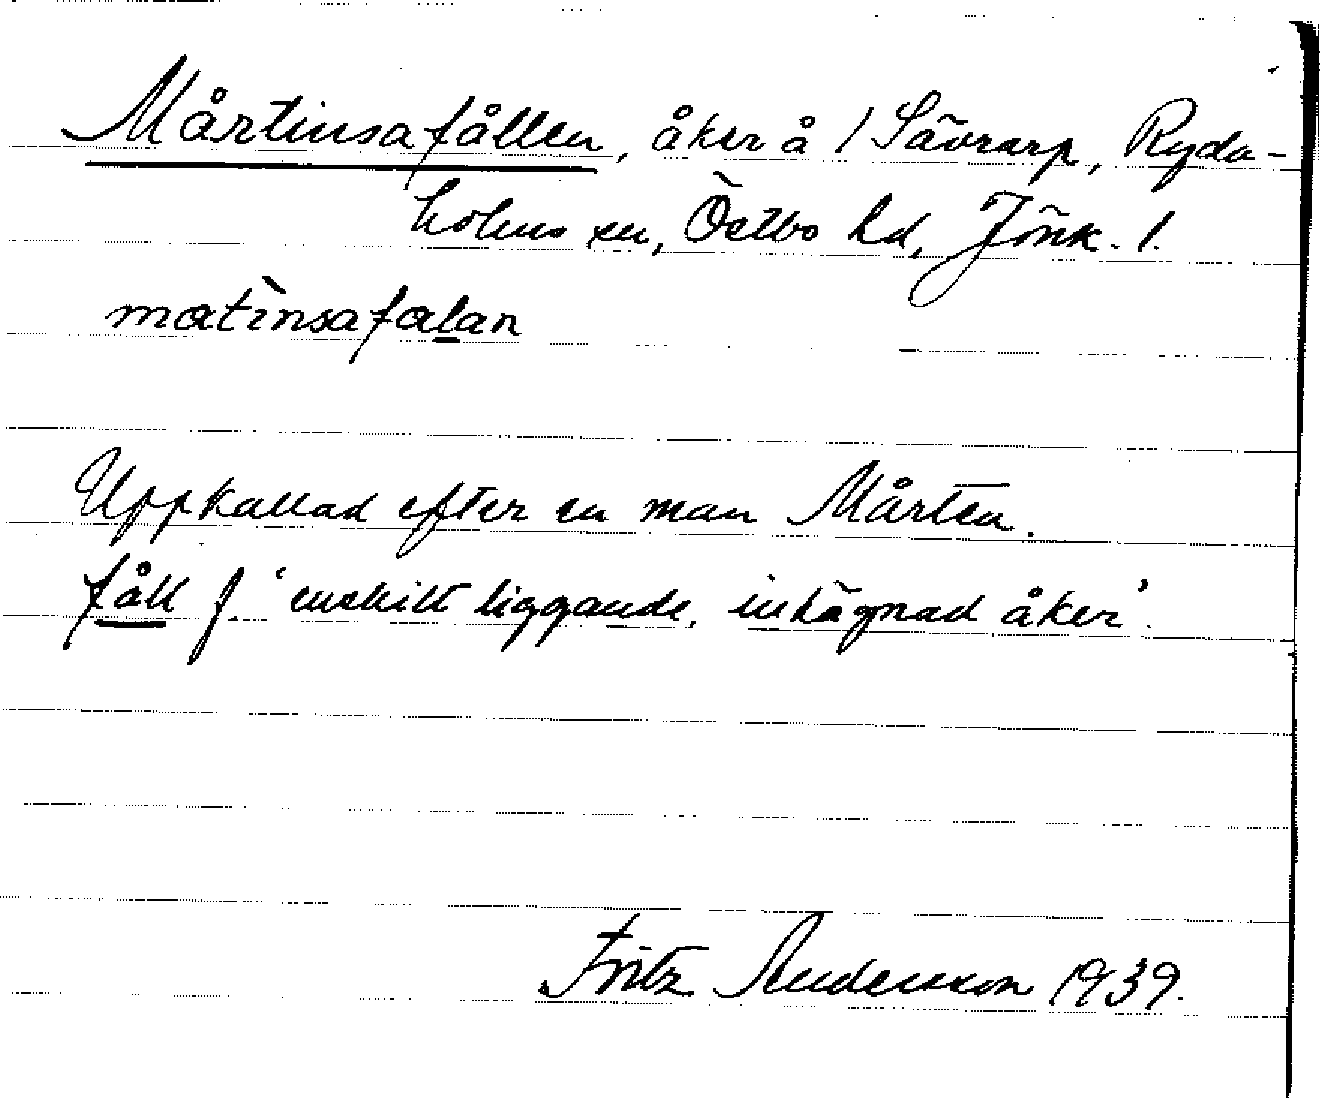 Mårtinsafållen, åker å 1 Sävrarp, Ryda-
holms sn, Östbo hd, Jönk. l.
matìnsafalan
Uppkallad efter en man Mårten.
fåll f. 'enskilt liggande, inhägnad åker'.
Fritz Andersson 1939.